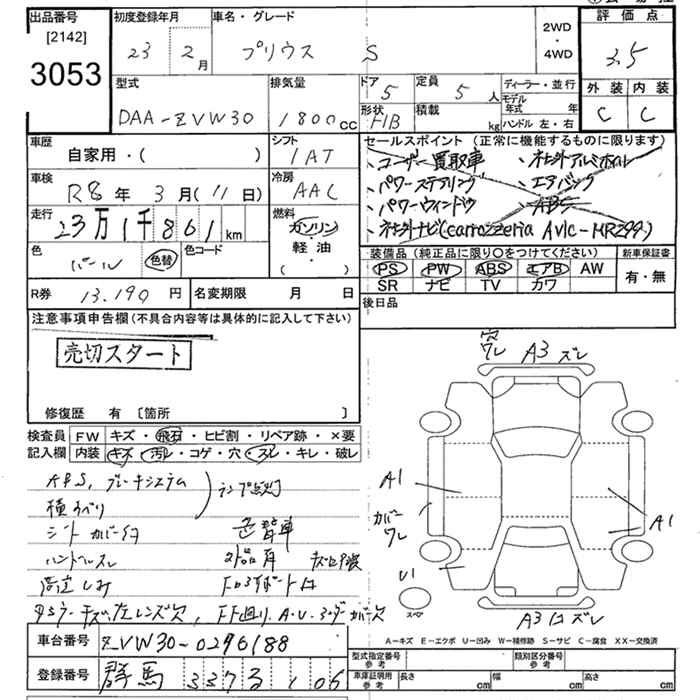 出品番号
[2142]
3053
初度登録年月
23 2 月
車名・グレード
プリウス S
2WD
・
4WD
評価点
3.5
外装 内装
C C
型式
DAA-ZVW30
排気量
1800 cc
ドア 5
定員 5 人
形状 F/B
積載 kg
ディーラー・並行
モデル年式 年
ハンドル 左・右
車歴
自家用・( )
シフト
IAT
車検
R8 年 3 月 (11 日)
冷房
AAC
走行
23万1千861 km
燃料
ガソリン
軽・油
( ・ )
色
パール 色替
色コード
R券 13.190 円
名変期限 月 日
セールスポイント (正常に機能するものに限ります)
、ユーザー買取車 、オセットアルミホイル
、パワーステアリング 、エアバッグ
、パワーウィンドウ 、ABS
、オセットナビ(carrozzeria AVIC-MRZ99)
装備品 (純正品に限り○をつけてください)
PS PW ABS エアB AW
SR ナビ TV カワ
新車保証書
有・無
後日品
注意事項申告欄 (不具合内容等は具体的に記入して下さい)
売切スタート
修復歴 有 [箇所 ]
検査員記入欄
FW キズ・飛石・ヒビ割・リペア跡・×要
内装 キズ・汚レ・コゲ・穴・スレ・キレ・破レ
ABS, ブレーキシステム
ランプ点灯
シートカバー付
色替車
ハンドルスレ
穴
ワレ A3 ズレ
A1
カバー
ワレ
A1
U1
スペア
A3 ズレ
車台番号 ZVW30-0296188
登録番号 群馬 337 る 106
A-キズ E-エクボ U-凹み W-補修跡 S-サビ C-腐食 XX-交換済
型式指定番号
参考
類別区分番号
参考
車庫証明用
参考
長さ cm 幅 cm 高さ cm